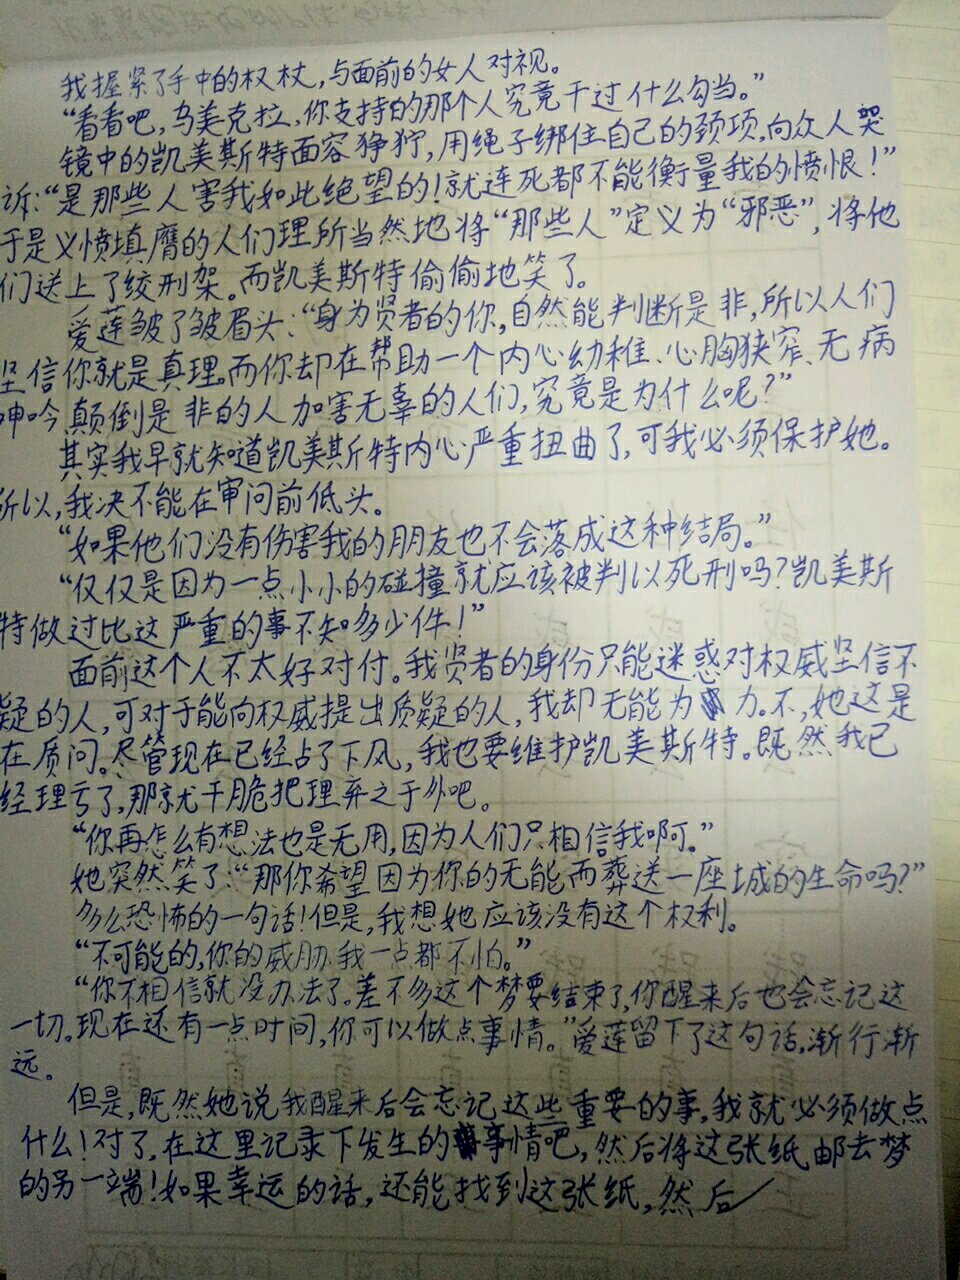 我握紧了手中的权杖,与面前的女人对视。
“看看吧,乌美克拉,你支持的那个人究竟干过什么勾当。”
镜中的凯美斯特面容狰狞,用绳子绑住自己的颈项,向众人哭
诉:“是那些人害我如此绝望的!就连死都不能衡量我的愤恨!”
于是义愤填膺的人们理所当然地将“那些人”定义为“邪恶”,将他
们送上了绞刑架。而凯美斯特偷偷地笑了。
爱莲皱了皱眉头:“身为贤者的你,自然能判断是非,所以人们
坚信你就是真理。而你却在帮助一个内心幼稚、心胸狭窄、无病
呻吟、颠倒是非的人加害无辜的人们,究竟是为什么呢?”
其实我早就知道凯美斯特内心严重扭曲了,可我必须保护她。
所以,我决不能在审问前低头。
“如果他们没有伤害我的朋友也不会落成这种结局。”
“仅仅是因为一点小小的碰撞就应该被判以死刑吗?凯美斯
特做过比这严重的事不知多少件!”
面前这个人不太好对付。我贤者的身份只能迷惑对权威坚信不
疑的人,可对于能向权威提出质疑的人,我却无能为力。不,她这是
在质问。尽管现在已经占了下风,我也要维护凯美斯特。既然我已
经理亏了,那就干脆把理弃之于外吧。
“你再怎么有想法也是无用,因为人们只相信我啊。”
她突然笑了:“那你希望因为你的无能而葬送一座城的生命吗?”
多么恐怖的一句话!但是,我想她应该没有这个权利。
“不可能的,你的威胁我一点都不怕。”
“你不相信就没办法了。差不多这个梦要结束了,你醒来后也会忘记这
一切。现在还有一点时间,你可以做点事情。”爱莲留下了这句话,渐行渐
远。
但是,既然她说我醒来后会忘记这些重要的事,我就必须做点
什么!对了,在这里记录下发生的事情吧,然后将这张纸邮去梦
的另一端!如果幸运的话,还能找到这张纸,然后